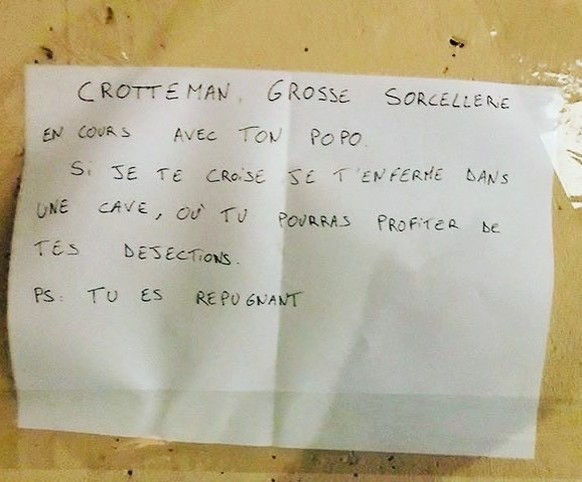 CROTTEMAN, GROSSE SORCELLERIE
EN COURS AVEC TON POPO.
Si JE TE CROiSE JE T'ENFERME DANS
UNE CAVE, OÙ TU POURRAS PROFiTER DE
TES DEJECTIONS.
PS: TU ES REPUGNANT